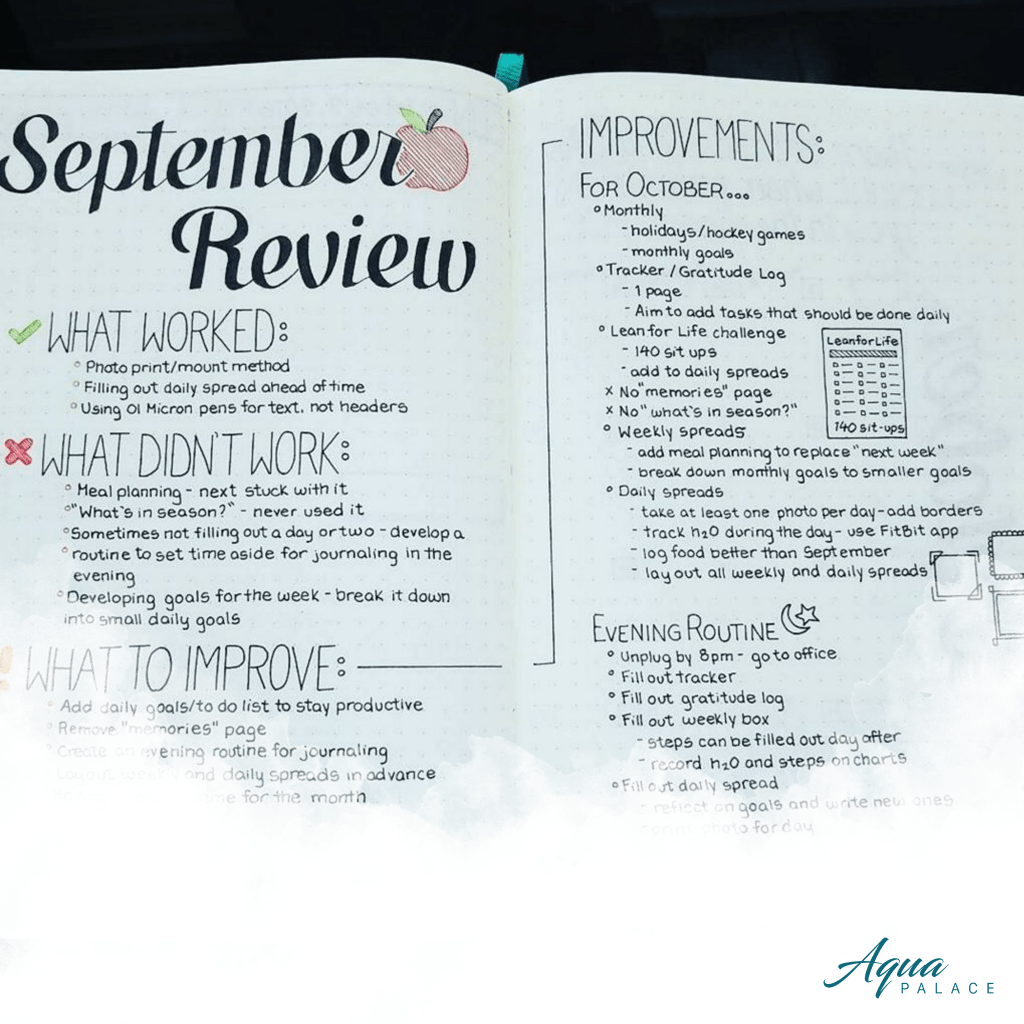 September
Review
WHAT WORKED:
Photo print/mount method
Filling out daily spread ahead of time
Using 01 Micron pens for text, not headers
WHAT DIDN'T WORK:
Meal planning - next stuck with it
"What's in season?" - never used it
Sometimes not filling out a day or two - develop a
routine to set time aside for journaling in the
evening
Developing goals for the week - break it down
into small daily goals
! WHAT TO IMPROVE:
Add daily goals/to do list to stay productive
Remove "memories" page
Create an evening routine for journaling
and daily spreads in advance
for the month
IMPROVEMENTS:
FOR OCTOBER...
Monthly
- holidays/hockey games
- monthly goals
Tracker / Gratitude Log
- 1 page
- Aim to add tasks that should be done daily
Lean for Life challenge
- 140 sit ups
- add to daily spreads
x No "memories" page
x No "what's in season?"
Weekly spreads
- add meal planning to replace "next week"
- break down monthly goals to smaller goals
Daily spreads
- take at least one photo per day - add borders
- track h2O during the day - use FitBit app
- log food better than September
- lay out all weekly and daily spreads
Lean for Life
140 sit-ups
EVENING ROUTINE
Unplug by 8pm - go to office
Fill out tracker
Fill out gratitude log
Fill out weekly box
- steps can be filled out day after
- record h2O and steps on charts
Fill out daily spread
- reflect on goals and write new ones
- print photo for day
Aqua
PALACE